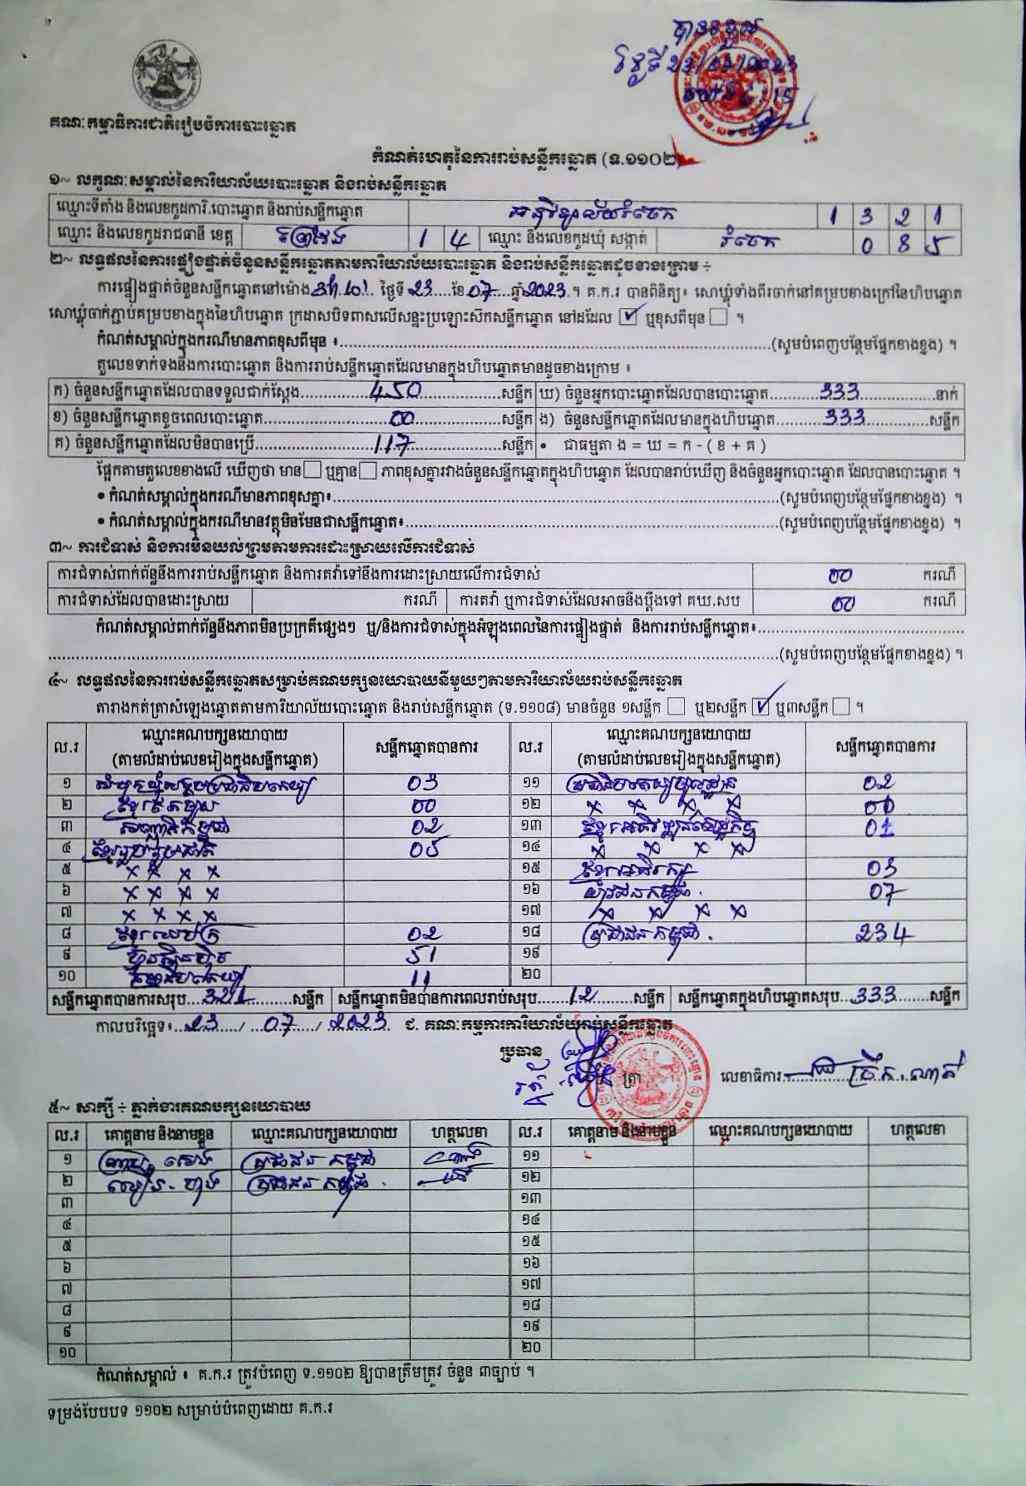 បានទទួល
គណៈកម្មាធិការជាតិរៀបចំការបោះឆ្នោត
កំណត់ហេតុនៃការរាប់សន្លឹកឆ្នោត (ទ.១១០២)
១~ លក្ខណៈសម្គាល់នៃការិយាល័យបោះឆ្នោត និងរាប់សន្លឹកឆ្នោត
ឈ្មោះទីតាំង និងលេខកូដការិ.បោះឆ្នោត និងរាប់សន្លឹកឆ្នោត 1 3 2 1
ឈ្មោះ និងលេខកូដរាជធានី ខេត្ត ព្រៃវែង 1 4 ឈ្មោះ និងលេខកូដឃុំ សង្កាត់ រំចេក 0 8 5
២~ លទ្ធផលនៃការផ្ទៀងផ្ទាត់ចំនួនសន្លឹកឆ្នោតតាមការិយាល័យបោះឆ្នោត និងរាប់សន្លឹកឆ្នោតដូចខាងក្រោម ÷
ការផ្ទៀងផ្ទាត់ចំនួនសន្លឹកឆ្នោតនៅម៉ោង ថ្ងៃទី 23 ខែ 07 ឆ្នាំ 2023 ។ គ.ក.រ បានពិនិត្យ៖ សោឃ្លុំទាំងពីរចាក់នៅគម្របខាងក្រៅនៃហិបឆ្នោត
សោឃ្លុំចាក់ភ្ជាប់គម្របខាងក្នុងនៃហិបឆ្នោត ក្រដាសបិទពាសលើសន្ទះប្រឡោះស៊កសន្លឹកឆ្នោត នៅដដែល ☑ ឬខុសពីមុន ☐ ។
កំណត់សម្គាល់ក្នុងករណីមានភាពខុសពីមុន ៖ (សូមបំពេញបន្ថែមផ្នែកខាងខ្នង) ។
តួលេខទាក់ទងនឹងការបោះឆ្នោត និងការរាប់សន្លឹកឆ្នោតដែលមានក្នុងហិបឆ្នោតមានដូចខាងក្រោម ៖
ក) ចំនួនសន្លឹកឆ្នោតដែលបានទទួលជាក់ស្តែង 450 សន្លឹក ឃ) ចំនួនអ្នកបោះឆ្នោតដែលបានបោះឆ្នោត 333 នាក់
ខ) ចំនួនសន្លឹកឆ្នោតខូចពេលបោះឆ្នោត 00 សន្លឹក ង) ចំនួនសន្លឹកឆ្នោតដែលមានក្នុងហិបឆ្នោត 333 សន្លឹក
គ) ចំនួនសន្លឹកឆ្នោតដែលមិនបានប្រើ 117 សន្លឹក • ជាធម្មតា ង = ឃ = ក - ( ខ + គ )
ផ្អែកតាមតួលេខខាងលើ ឃើញថា មាន ☐ ឬគ្មាន ☐ ភាពខុសគ្នារវាងចំនួនសន្លឹកឆ្នោតក្នុងហិបឆ្នោត ដែលបានរាប់ឃើញ និងចំនួនអ្នកបោះឆ្នោត ដែលបានបោះឆ្នោត ។
• កំណត់សម្គាល់ក្នុងករណីមានភាពខុសគ្នា៖ (សូមបំពេញបន្ថែមផ្នែកខាងខ្នង) ។
• កំណត់សម្គាល់ក្នុងករណីមានវត្ថុមិនមែនជាសន្លឹកឆ្នោត៖ (សូមបំពេញបន្ថែមផ្នែកខាងខ្នង) ។
៣~ ការជំទាស់ និងការមិនយល់ព្រមតាមការដោះស្រាយលើការជំទាស់
ការជំទាស់ពាក់ព័ន្ធនឹងការរាប់សន្លឹកឆ្នោត និងការតវ៉ាទៅនឹងការដោះស្រាយលើការជំទាស់ 00 ករណី
ការជំទាស់ដែលបានដោះស្រាយ ករណី ការតវ៉ា ឬការជំទាស់ដែលអាចនឹងប្តឹងទៅ គឃ.សប 00 ករណី
កំណត់សម្គាល់ពាក់ព័ន្ធនឹងភាពមិនប្រក្រតីផ្សេងៗ ឬ/និងការជំទាស់ក្នុងអំឡុងពេលនៃការផ្ទៀងផ្ទាត់ និងការរាប់សន្លឹកឆ្នោត៖
(សូមបំពេញបន្ថែមផ្នែកខាងខ្នង) ។
៤~ លទ្ធផលនៃការរាប់សន្លឹកឆ្នោតសម្រាប់គណបក្សនយោបាយនីមួយៗតាមការិយាល័យរាប់សន្លឹកឆ្នោត
តារាងកត់ត្រាសំឡេងឆ្នោតតាមការិយាល័យបោះឆ្នោត និងរាប់សន្លឹកឆ្នោត (ទ.១១០៨) មានចំនួន ១សន្លឹក ☐ ឬ២សន្លឹក ☑ ឬ៣សន្លឹក ☐ ។
ល.រ ឈ្មោះគណបក្សនយោបាយ (តាមលំដាប់លេខរៀងក្នុងសន្លឹកឆ្នោត) សន្លឹកឆ្នោតបានការ ល.រ ឈ្មោះគណបក្សនយោបាយ (តាមលំដាប់លេខរៀងក្នុងសន្លឹកឆ្នោត) សន្លឹកឆ្នោតបានការ
១ សំបុកឃ្មុំសង្គមប្រជាធិបតេយ្យ 03 ១១ 02
២ 00 ១២ x x x x 00
៣ 02 ១៣ ខ្មែរអភិវឌ្ឍន៍សេដ្ឋកិច្ច 01
៤ ខ្មែររួបរួមជាតិ 05 ១៤ x x x x
៥ x x x x ១៥ ខ្មែរអភិរក្ស 03
៦ x x x x ១៦ 07
៧ x x x x ១៧ x x x x
៨ 02 ១៨ ប្រជាជនកម្ពុជា 234
៩ ហ៊្វុនស៊ិនប៉ិច 51 ១៩
១០ 11 ២០
សន្លឹកឆ្នោតបានការសរុប 321 សន្លឹក សន្លឹកឆ្នោតមិនបានការពេលរាប់សរុប 12 សន្លឹក សន្លឹកឆ្នោតក្នុងហិបឆ្នោតសរុប 333 សន្លឹក
កាលបរិច្ឆេទ៖ 23 / 07 / 2023 ជ. គណៈកម្មការការិយាល័យរាប់សន្លឹកឆ្នោត
ប្រធាន ត្រា លេខាធិការ
៥~ សាក្សី ÷ ភ្នាក់ងារគណបក្សនយោបាយ
ល.រ គោត្តនាម និងនាមខ្លួន ឈ្មោះគណបក្សនយោបាយ ហត្ថលេខា ល.រ គោត្តនាម និងនាមខ្លួន ឈ្មោះគណបក្សនយោបាយ ហត្ថលេខា
១ ប្រជាជនកម្ពុជា ១១
២ ប្រជាជនកម្ពុជា ១២
៣ ១៣
៤ ១៤
៥ ១៥
៦ ១៦
៧ ១៧
៨ ១៨
៩ ១៩
១០ ២០
កំណត់សម្គាល់ ៖ គ.ក.រ ត្រូវបំពេញ ទ.១១០២ ឱ្យបានត្រឹមត្រូវ ចំនួន ៣ច្បាប់ ។
ទម្រង់បែបបទ ១១០២ សម្រាប់បំពេញដោយ គ.ក.រ